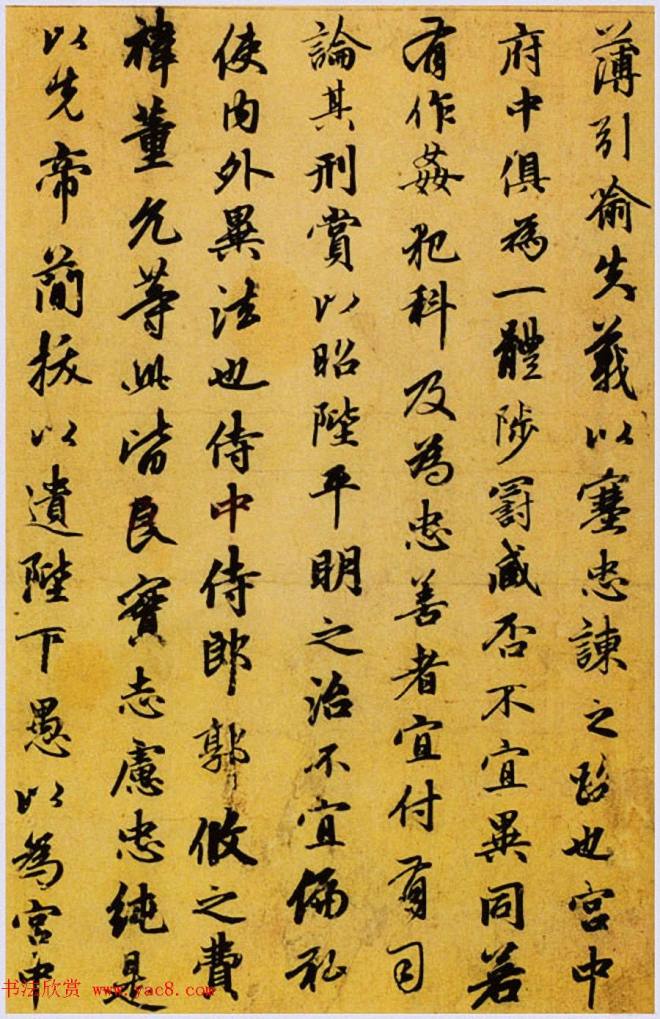 薄引喻失義以塞忠諫之路也宮中
府中俱為一體陟罰臧否不宜異同若
有作姦犯科及為忠善者宜付有司
論其刑賞以昭陛平明之治不宜偏私
使內外異法也侍中侍郎郭攸之費
禕董允等此皆良實志慮忠純是
以先帝簡拔以遺陛下愚以為宮中
书法欣赏 www.yac8.com